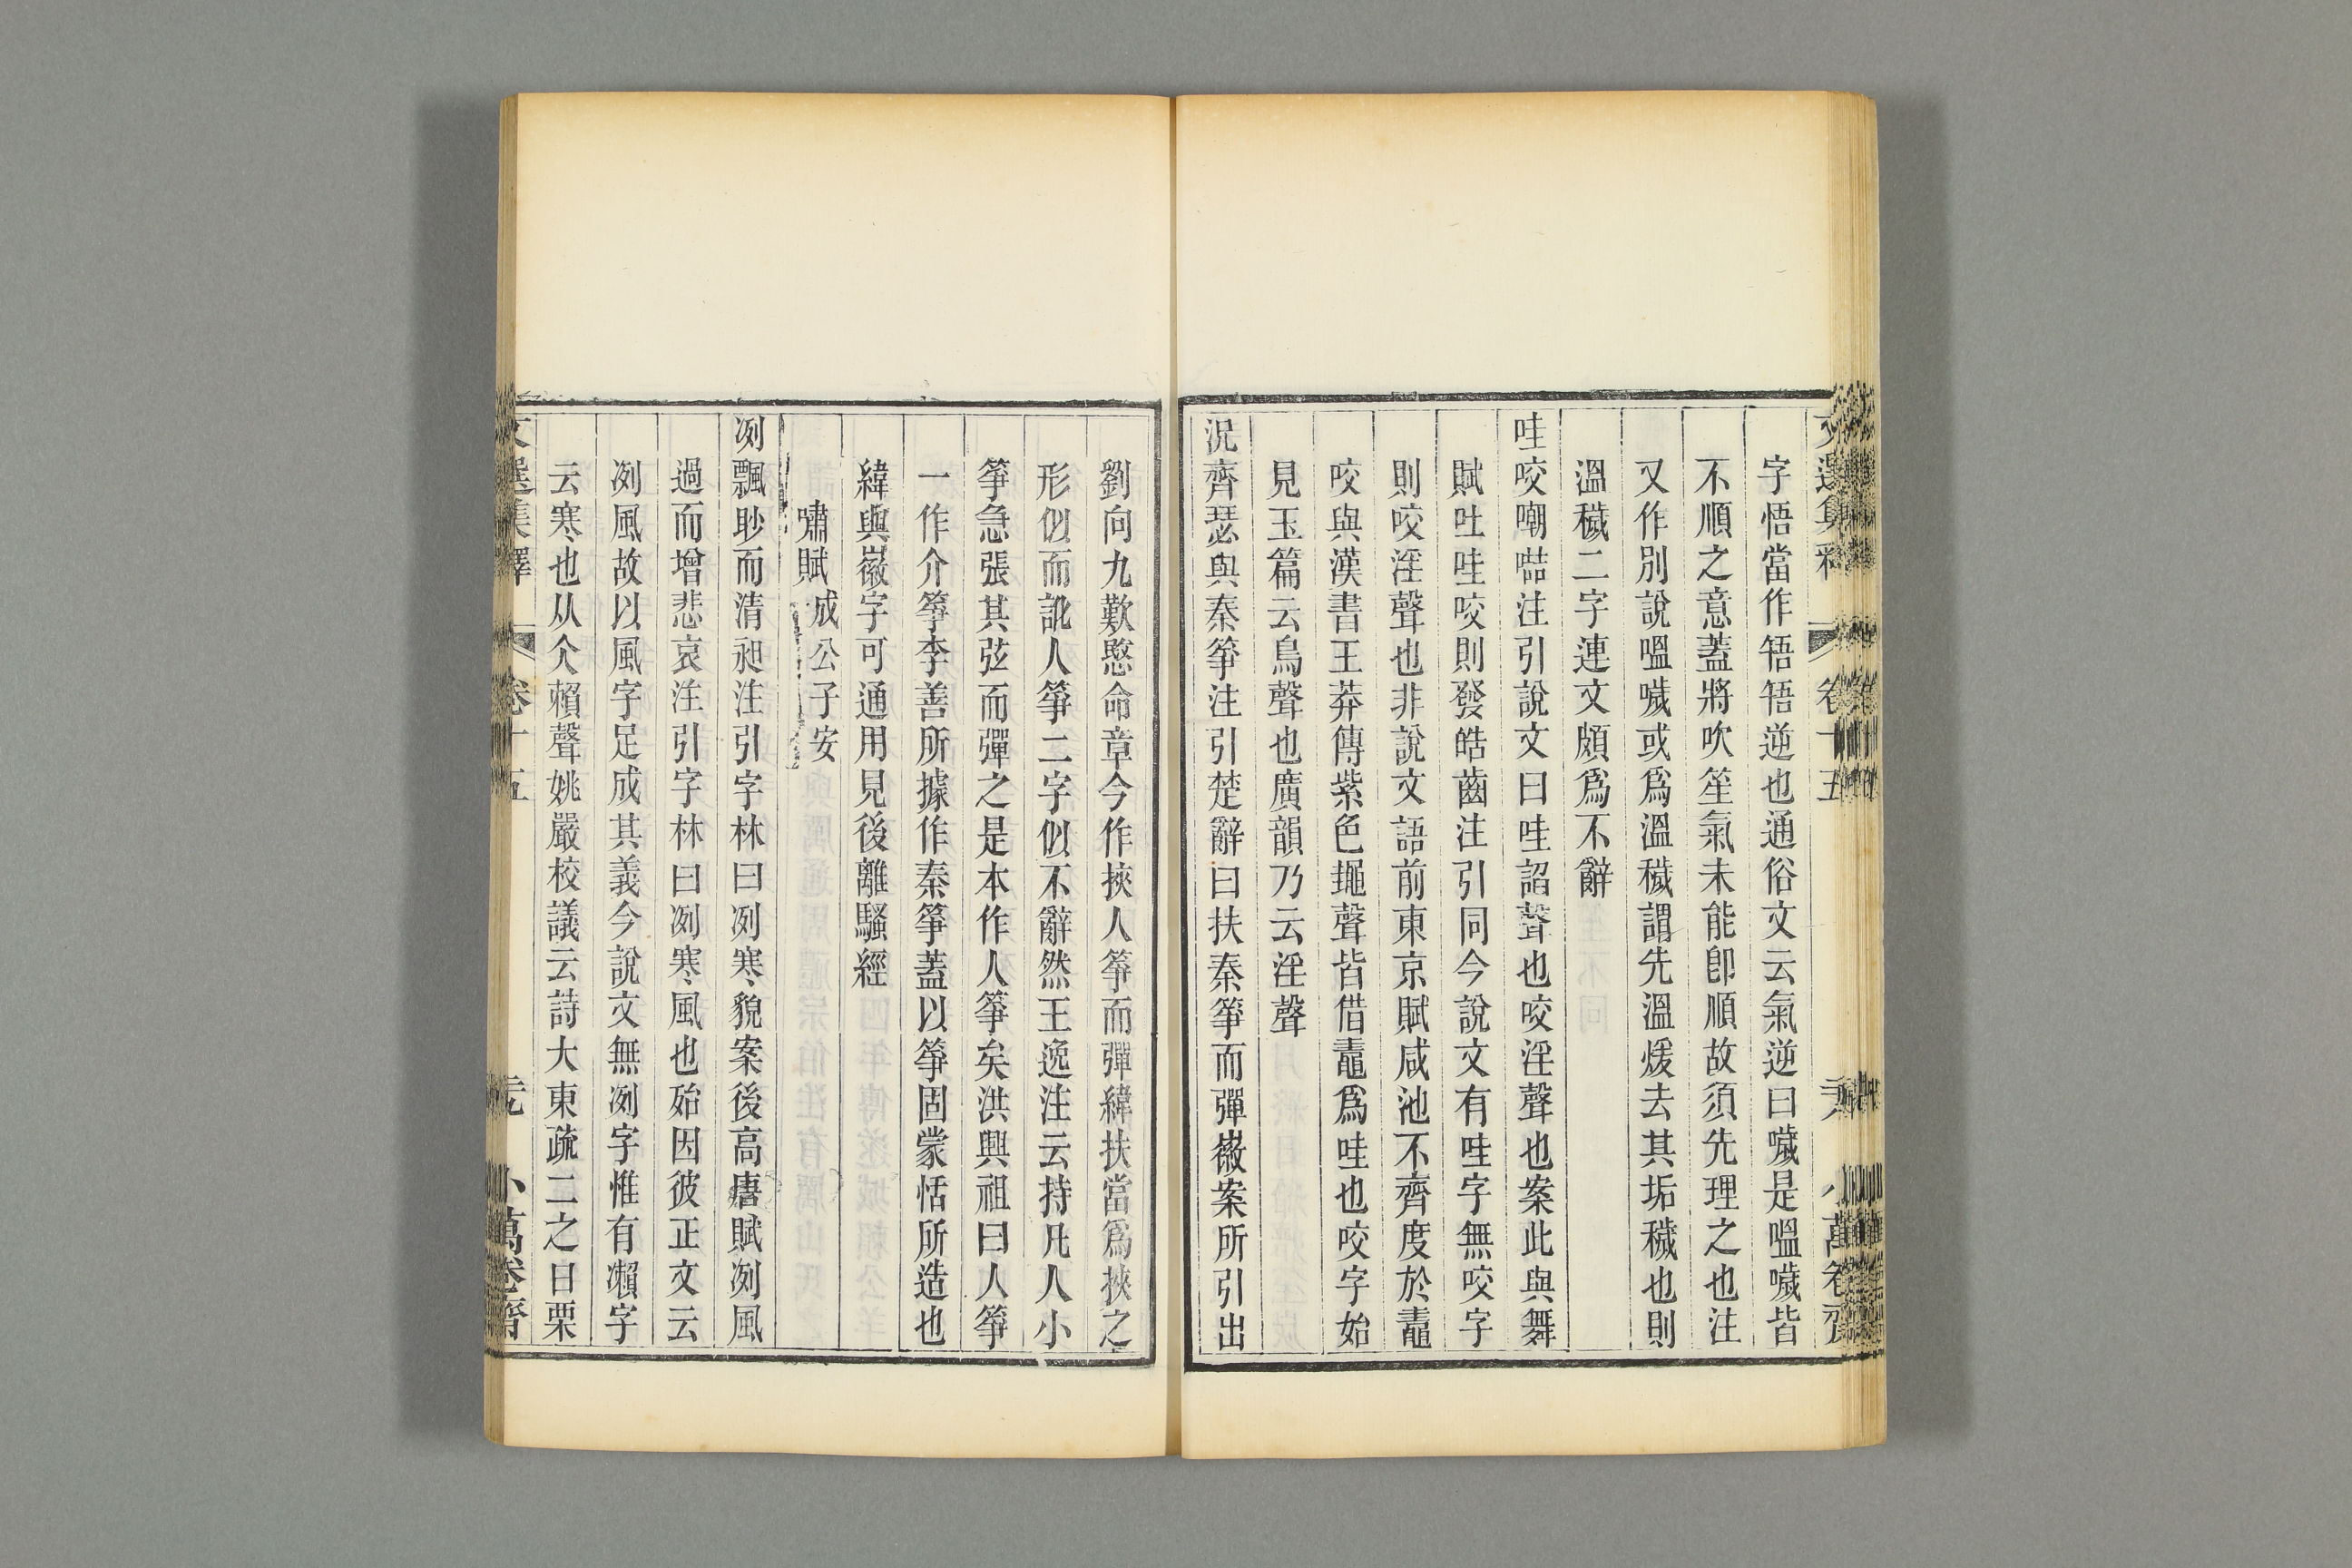 字悟當作啎啎逆也通俗文云氣逆曰噦是嗢噦皆
不順之意蓋將吹笙氣未能卽順故須先理之也注
又作別說嗢噦或爲溫穢謂先溫煖去其垢穢也則
溫穢二字連文頗爲不辭
哇咬嘲喆注引說文曰哇諂聲也咬淫聲也案此與舞
賦吐哇咬則發皓齒注引同今說文有哇字無咬字
則咬淫聲也非說文語前東京賦咸池不齊度於䵷
咬與漢書王莽傳紫色䵷聲皆借䵷爲哇也咬字始
見玉篇云鳥聲也廣韻乃云淫聲
況齊瑟與秦箏注引楚辭曰扶秦箏而彈徽案所引出
劉向九歎愍命章今作挾人箏而彈緯扶當爲挾之
形似而訛人箏二字似不辭然王逸注云持凡人小
箏急張其弦而彈之是本作人箏矣洪興祖曰人箏
一作介箏李善所據作秦箏蓋以箏固蒙恬所造也
緯與徽字可通用見後離騷經
嘯賦 成公子安
冽飄眇而清昶注引字林曰冽寒貌案後高唐賦冽風
過而增悲哀注引字林曰冽寒風也殆因彼正文云
冽風故以風字足成其義今說文無冽字惟有瀨字
云寒也从仌賴聲姚嚴校議云詩大東疏二之日栗
文選集釋 卷十五 小萬卷齋